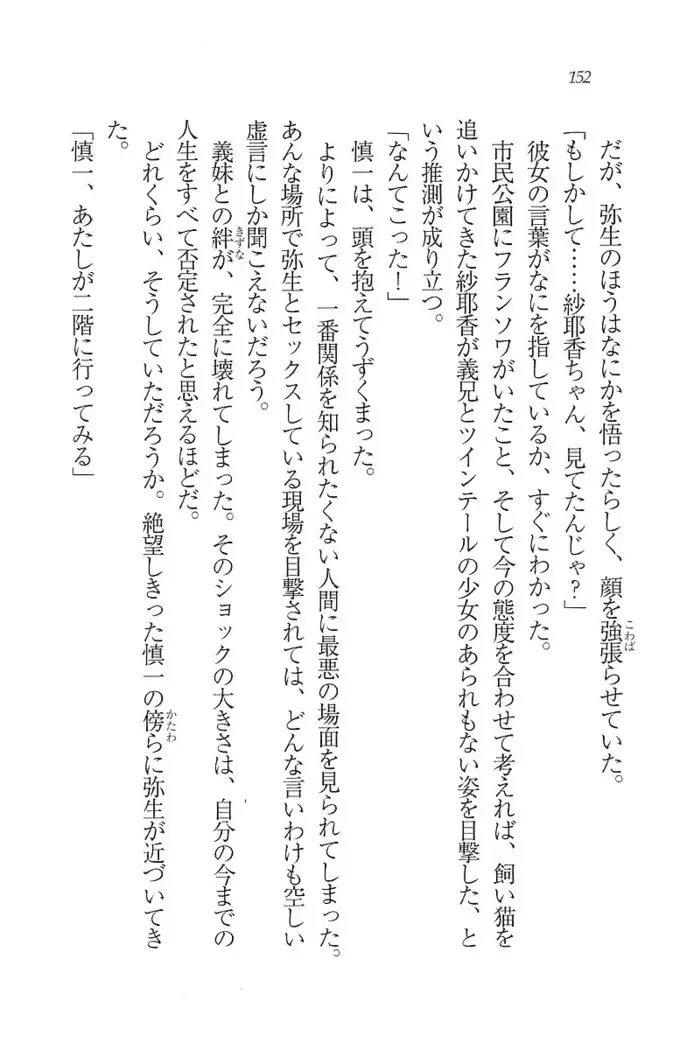 152
だが、弥生のほうはなにかを悟ったらしく、顔を強張らせていた。
こわば
「もしかして……紗耶香ちゃん、見てたんじゃ？」
彼女の言葉がなにを指しているか、すぐにわかった。
市民公園にフランソワがいたこと、そして今の態度を合わせて考えれば、飼い猫を
追いかけてきた紗耶香が義兄とツインテールの少女のあられもない姿を目撃した、と
いう推測が成り立つ。
「なんてこった！」
慎一は、頭を抱えてうずくまった。
よりによって、一番関係を知られたくない人間に最悪の場面を見られてしまった。
あんな場所で弥生とセックスしている現場を目撃されては、どんな言いわけも空しい
虚言にしか聞こえないだろう。
義妹との絆が、完全に壊れてしまった。そのショックの大きさは、自分の今までの
きずな
人生をすべて否定されたと思えるほどだ。
どれくらい、そうしていただろうか。絶望しきった慎一の傍らに弥生が近づいてき
かたわ
た。
「慎一、あたしが二階に行ってみる」